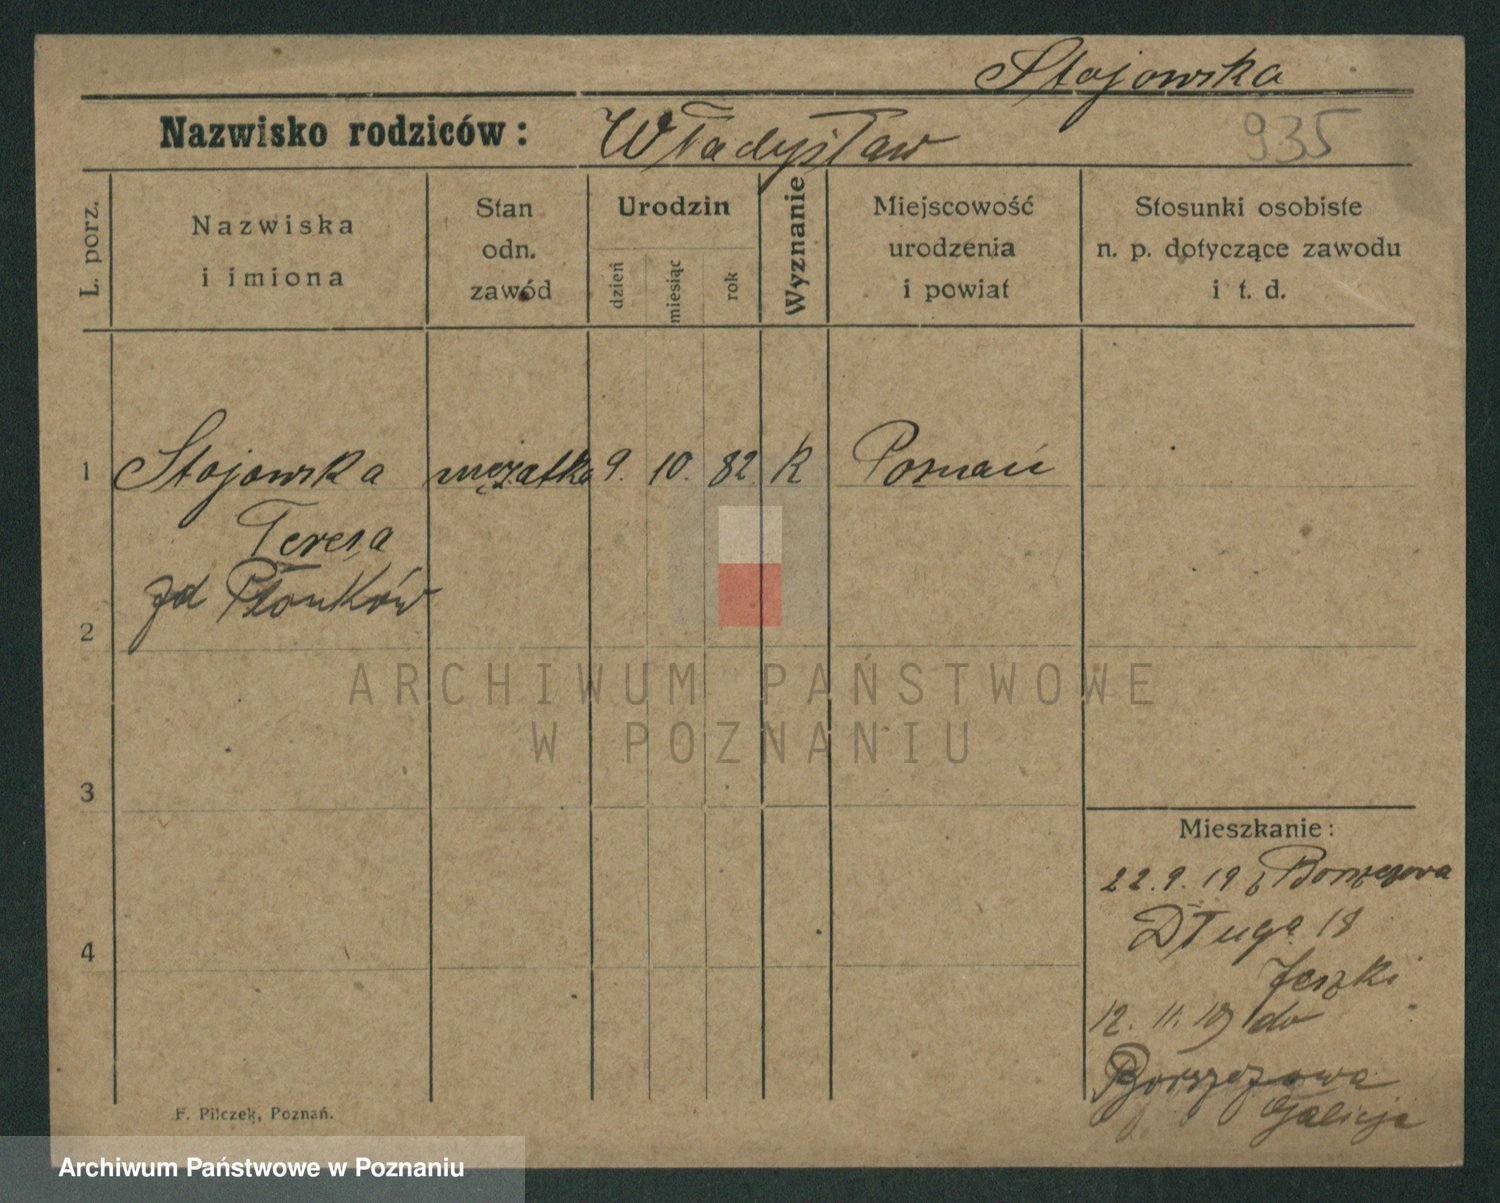 Stojowska
Nazwisko rodziców: Władysław 935
L. porz.
Nazwiska
i imiona
Stan
odn.
zawód
Urodzin
dzień
miesiąc
rok
Wyznanie
Miejscowość
urodzenia
i powiat
Stosunki osobiste
n. p. dotyczące zawodu
i t. d.
1 Stojowska mężatka 9. 10. 82. K Poznań
Teresa
zd Płonków
2
3
4
Mieszkanie:
22.9.19 z
Długa 18
12. 11. 19 do
Borszczowa
Galicja
F. Pilczek, Poznań.
ARCHIWUM PAŃSTWOWE
W POZNANIU
Archiwum Państwowe w Poznaniu